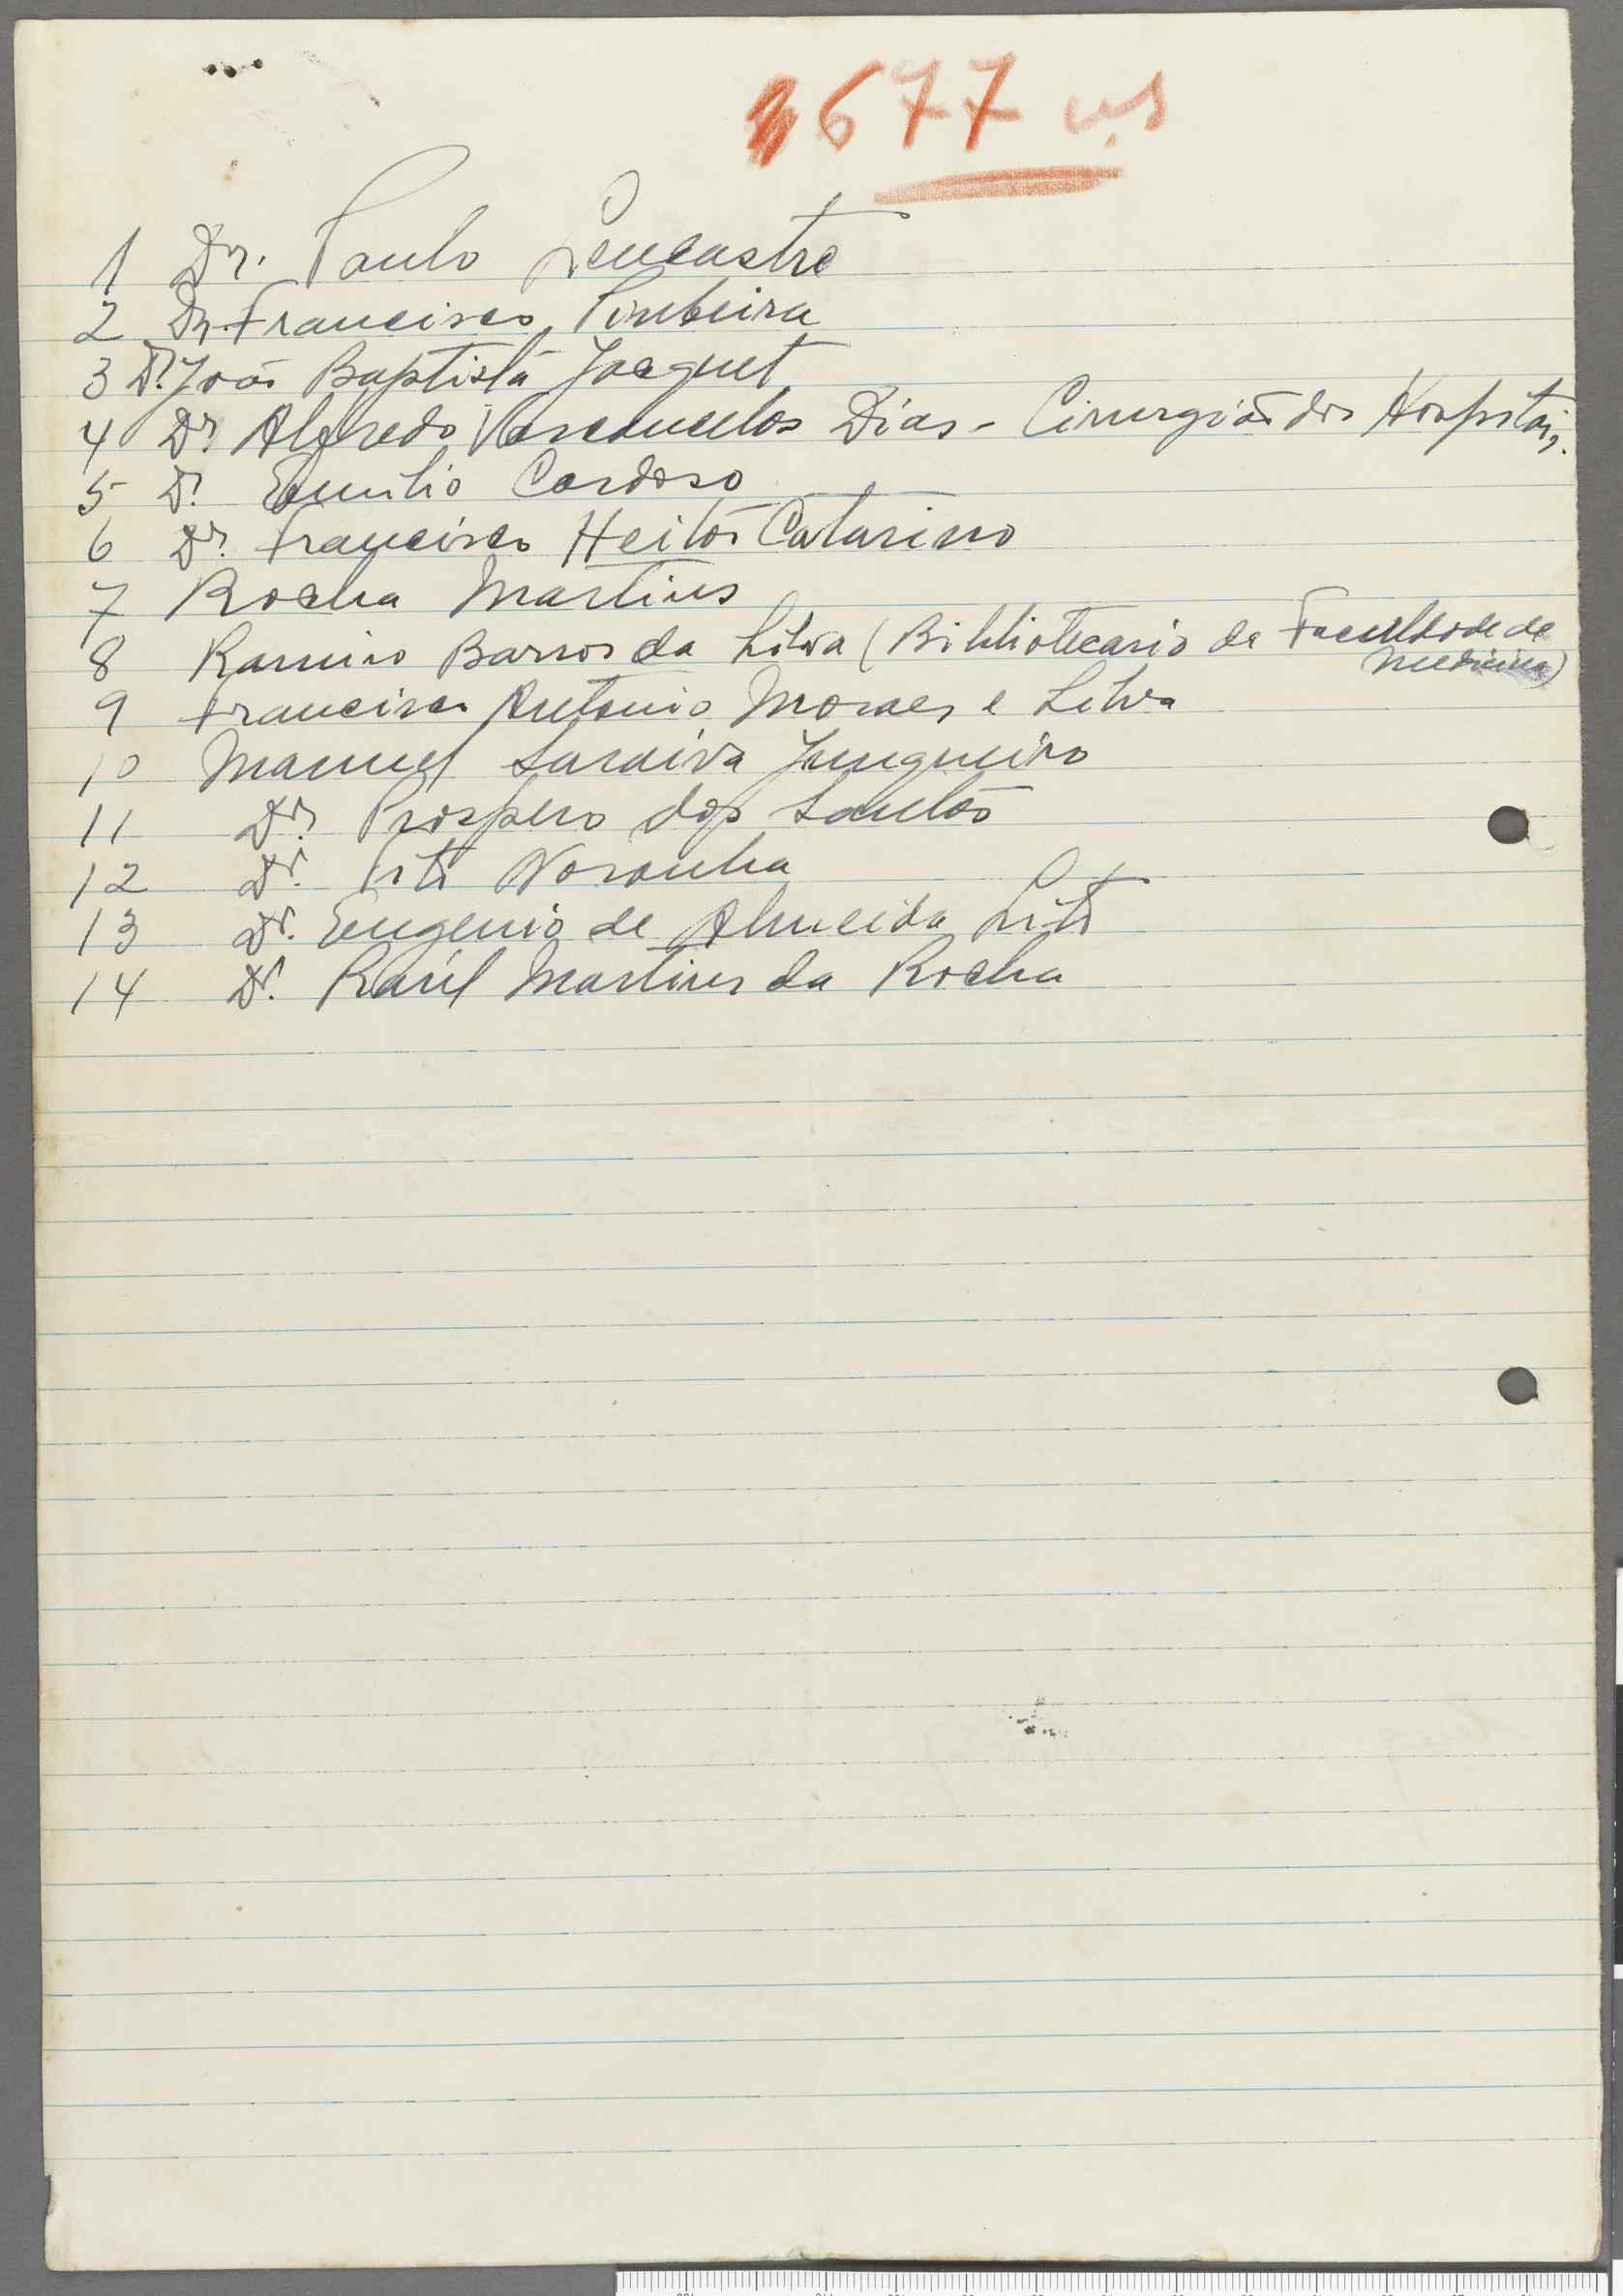 677
1 Dr. Paulo Lencastre
2 Dr. Francisco Pimteira
3 Dr. João Baptista Jacquet
4 Dr Alfredo Vasconcelos Dias - Cirurgião dos Hospitais.
5 Dr. Emilio Cardoso
6 Dr. Francisco Heitor Catarino
7 Rocha Martins
8 Ramiro Barros da Silva (Bibliotecario da Faculdade de
Medicina)
9 Francisco Antonio Moraes e Silva
10 Manuel Saraiva Junqueiro
11 Dr. Prospero dos Santos
12 Dr. Noronha
13 Dr. Eugenio de Almeida
14 Dr. Raúl Martins da Rocha